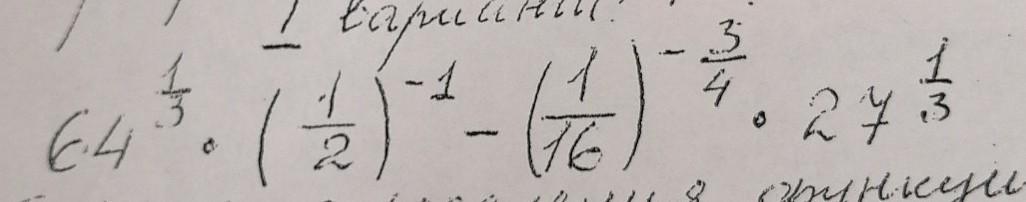 I вариант.
64^(1/3) · (1/2)^(-1) - (1/16)^(-3/4) · 27^(1/3)
функции